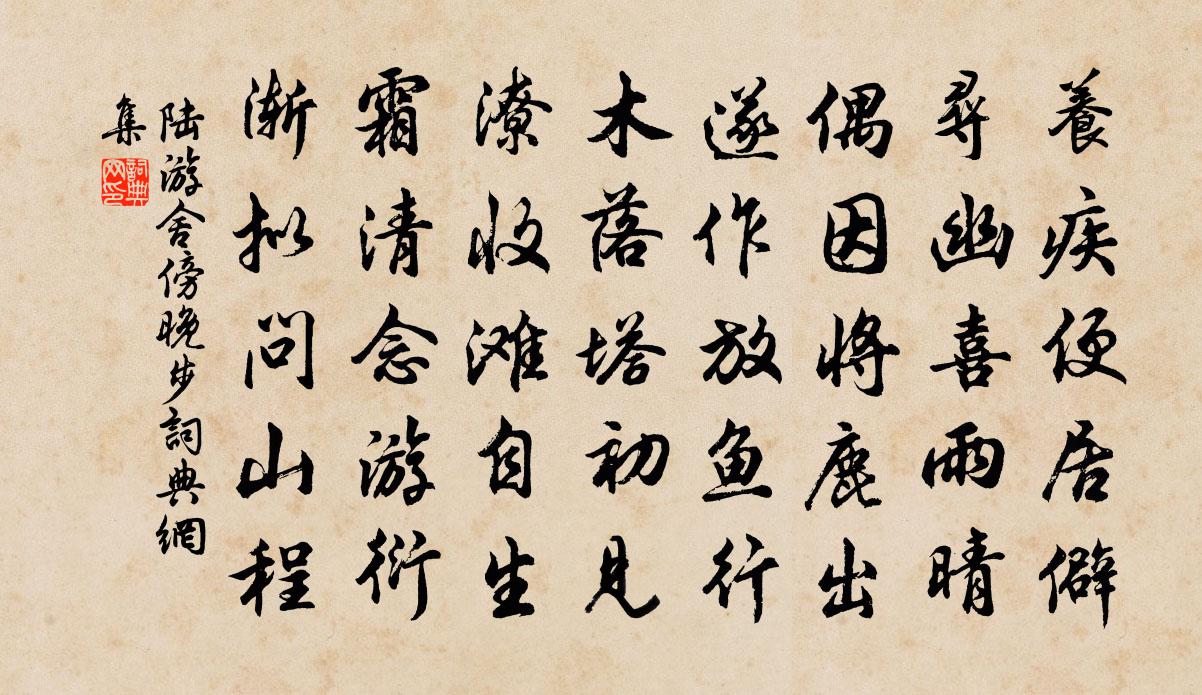 養疾便居僻
尋幽喜雨晴
偶因将鹿出
遂作放鱼行
木落塔初见
潦收滩自生
霜清念游衍
渐拟问山程
陆游舍傍晚步詞典網
集
詞典网印